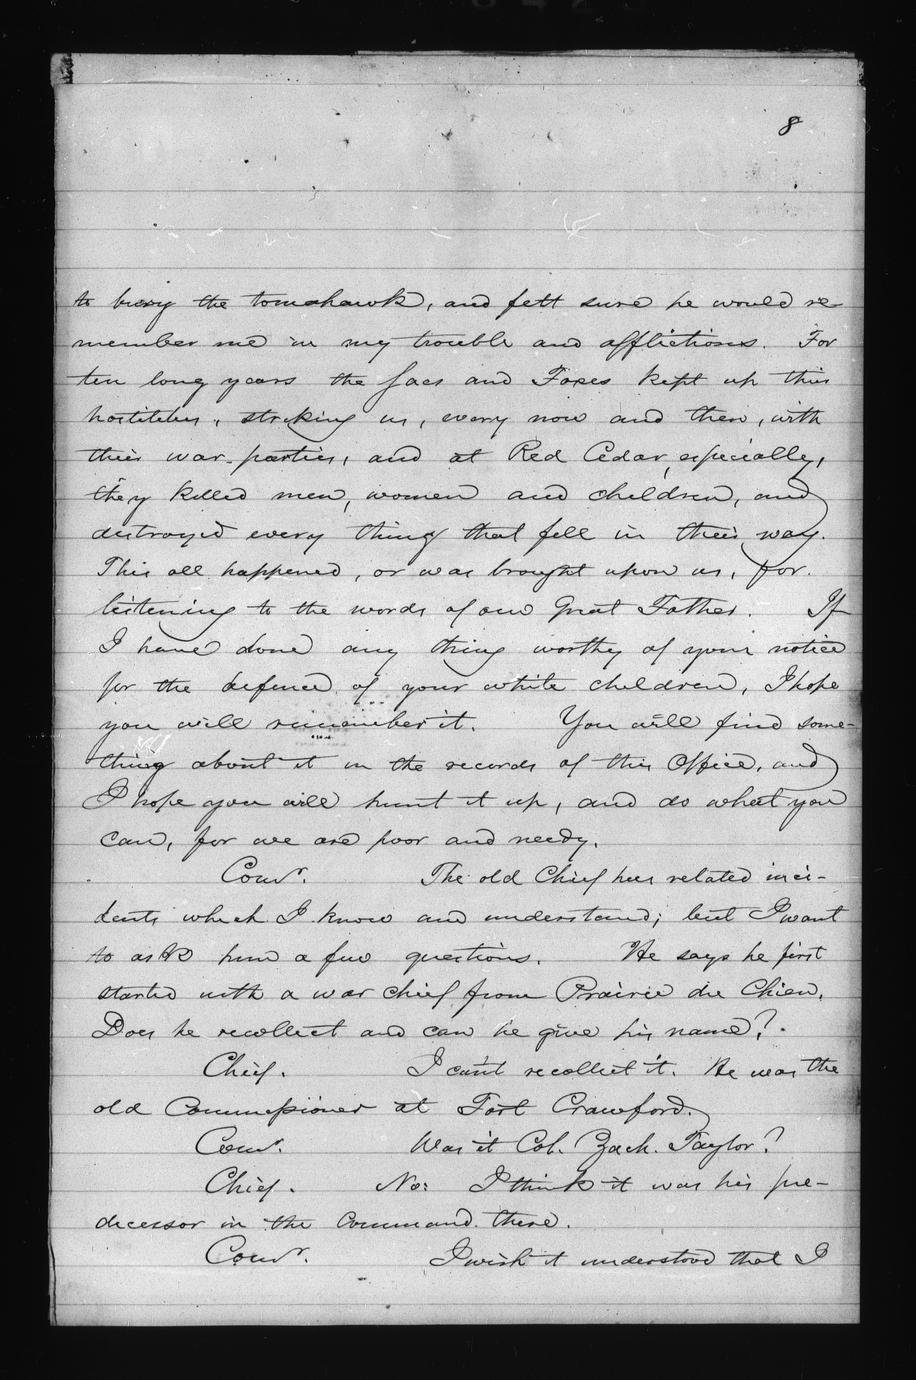 8
to bury the tomahawk, and felt sure he would re-
member me in my trouble and afflictions. For
ten long years the Sacs and Foxes kept up this
hostilities, striking us, every now and then, with
their war-parties, and at Red Cedar, especially,
they killed men, women and children, and
destroyed every thing that fell in their way.
This all happened, or was brought upon us, for
listening to the words of our Great Father. If
I have done any thing worthy of your notice
for the defence of your white children, I hope
you will remember it. You will find some-
thing about it in the records of this Office, and
I hope you will hunt it up, and do what you
can, for we are poor and needy.
Comr. The old Chief has related inci-
dents which I know and understand; but I want
to ask him a few questions. He says he first
started with a war chief from Prairie du Chien.
Does he recollect and can he give his name?
Chief. I can't recollect it. He was the
old Commissioner at Fort Crawford.
Comr. Was it Col. Zach. Taylor?
Chief. No: I think it was his pre-
decessor in the command there.
Comr. I wish it understood that I